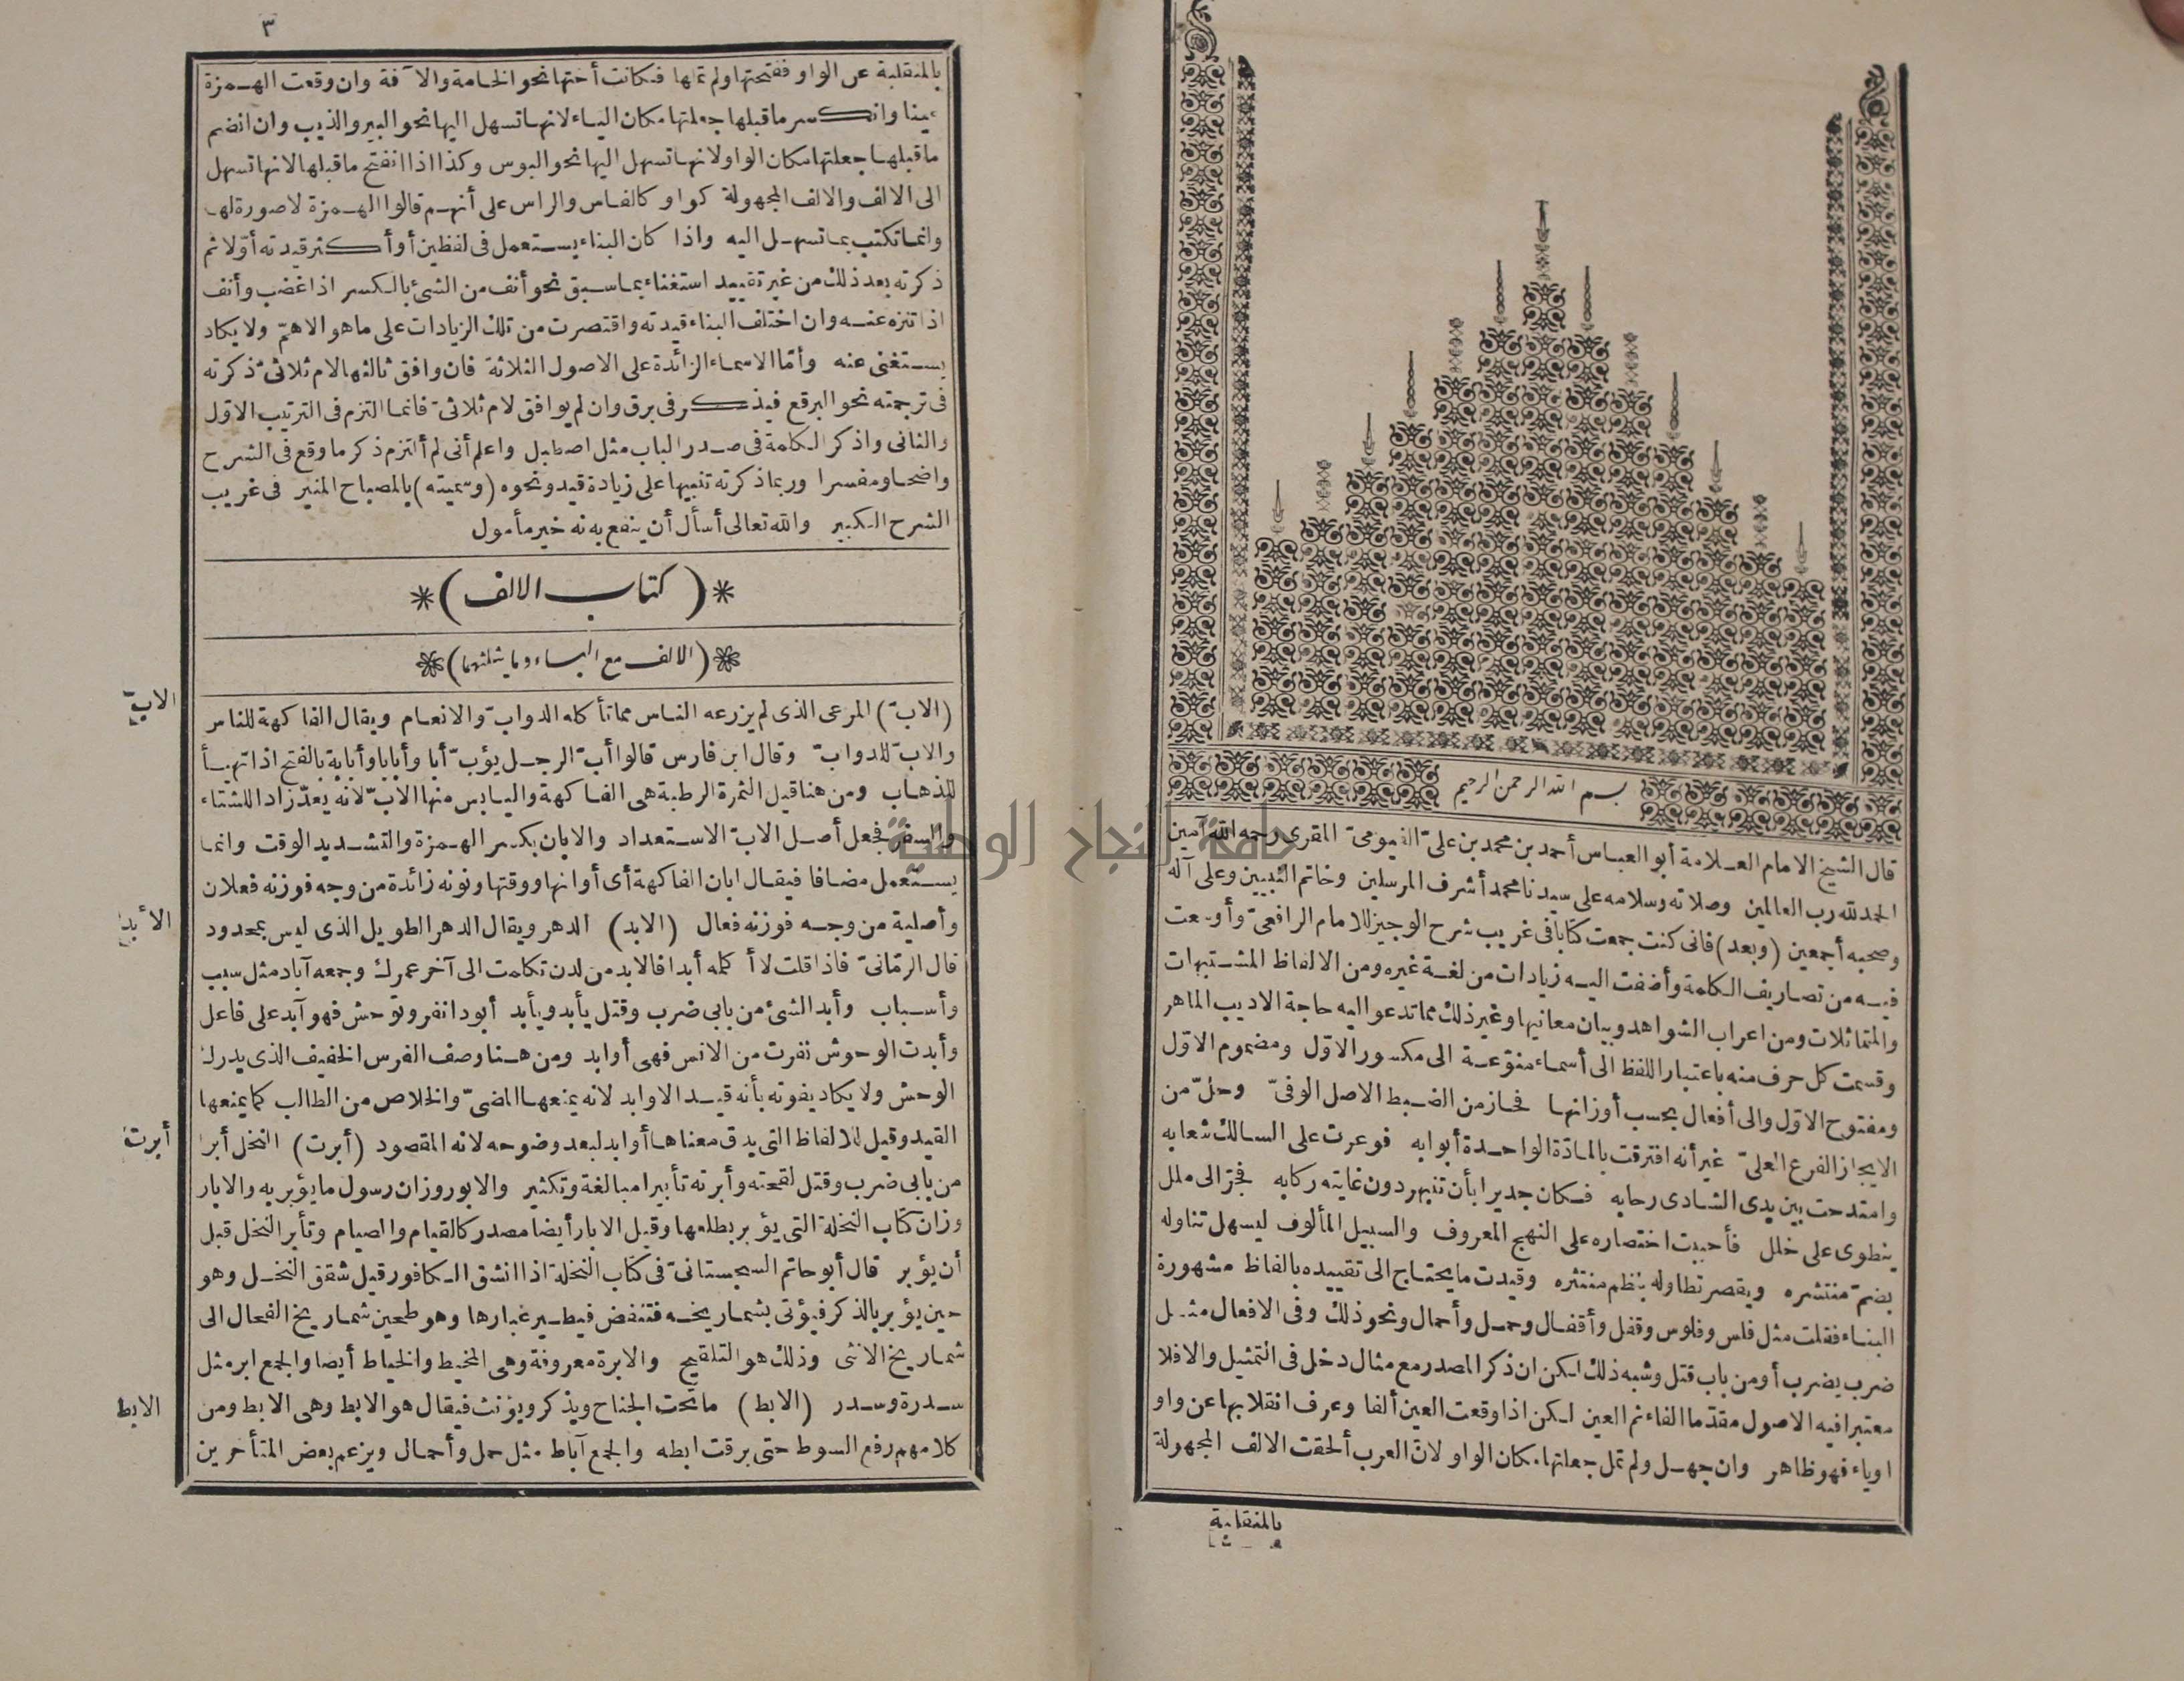 بسم الله الرحمن الرحيم
قال الشيخ الامام العلامة أبو العباس أحمد بن محمد بن علىّ الفيومىّ المقرى رحمه الله آمين
الحمد لله رب العالمين وصلاته وسلامه على سيدنا محمد أشرف المرسلين وخاتم النبيين وعلى آله
وصحبه أجمعين (وبعد) فانى كنت جمعت كتابا فى غريب شرح الوجيز للامام الرافعىّ وأوسعت
فيه من تصاريف الكلمة وأضفت اليه زيادات من لغة غيره ومن الالفاظ المشتبهات
والمتماثلات ومن اعراب الشواهد وبيان معانيها وغير ذلك مما تدعو اليه حاجة الاديب الماهر
وقسمت كل حرف منه باعتبار اللفظ الى أسماء منوّعة الى مكسور الاوّل ومضموم الاوّل
ومفتوح الاوّل والى أفعال بحسب أوزانها فحاز من الضبط الاصل الوفىّ وحلّ من
الايجاز الفرع العلىّ غير أنه افترقت بالمادّة الواحدة أبوابه فوعرت على السالك شعابه
وامتدحت بين يدى الشادى رحابه فكان جديرا بأن تنبهر دون غايته ركابه فجرّ الى ملل
ينطوى على خلل فأحببت اختصاره على النهج المعروف والسبيل المألوف ليسهل تناوله
بضمّ منتشره ويقصر تطاوله بنظم منتثره وقيدت ما يحتاج الى تقييده بالفاظ مشهورة
البناء فقلت مثل فلس وفلوس وقفل وأقفال وحمل وأحمال ونحو ذلك وفى الافعال مثل
ضرب يضرب أو من باب قتل وشبه ذلك لكن ان ذكر المصدر مع مثال دخل فى التمثيل والافلا
معتبرا فيه الاصول مقدّما الفاء ثم العين لكن اذا وقعت العين ألفا وعرف انقلابها عن واو
او ياء فهو ظاهر وان جهل ولم تمل جعلتها مكان الواو لانّ العرب ألحقت الالف المجهولة
بالمنقلبة
٣
بالمنقلبة عن الواو ففتحتها ولم تملها فكانت أختها نحو الخامة والآفة وان وقعت الهمزة
عينا وانكسر ما قبلها جعلتها مكان الياء لانها تسهل اليها نحو البير والذيب وان انضم
ما قبلها جعلتها مكان الواو لانها تسهل اليها نحو البوس وكذا اذا انفتح ما قبلها لانها تسهل
الى الالف والالف المجهولة كواو كالفاس والراس على أنهم قالوا الهمزة لا صورة لها
وانما تكتب بما تسهل اليه واذا كان البناء يستعمل فى لفظين أو أكثر قيدته أوّلا ثم
ذكرته بعد ذلك من غير تقييد استغناء بما سبق نحو أنف من الشئ بالكسر اذا غضب وأنف
اذا تنزه عنه وان اختلف البناء قيدته واقتصرت من تلك الزيادات على ما هو الاهمّ ولا يكاد
يستغنى عنه وأمّا الاسماء الزائدة على الاصول الثلاثة فان وافق ثالثها لام ثلاثىّ ذكرته
فى ترجمته نحو البرقع فيذكر فى برق وان لم يوافق لام ثلاثىّ فانما التزم فى الترتيب الاوّل
والثانى واذكر الكلمة فى صدر الباب مثل اصطبل واعلم أنى لم ألتزم ذكر ما وقع فى الشرح
واضحا ومفسرا وربما ذكرته تنبيها على زيادة قيد ونحوه (وسميته) بالمصباح المنير فى غريب
الشرح الكبير والله تعالى أسأل أن ينفع به انه خير مأمول
*(كتاب الالف)*
*(الالف مع الباء وما يثلثهما)*
(الابّ) المرعى الذى لم يزرعه الناس مما تأكله الدوابّ والانعام ويقال الفاكهة للناس
والابّ للدوابّ وقال ابن فارس قالوا أبّ الرجل يؤبّ أبا وأبابا وأبابة بالفتح اذا تهيأ
للذهاب ومن هنا قيل الثمرة الرطبة هى الفاكهة واليابس منها الابّ لانه يعدّ زادا للشتاء
والسفر فجعل أصل الابّ الاستعداد والابان بكسر الهمزة والتشديد الوقت وانما
يستعمل مضافا فيقال ابان الفاكهة أى أوانها ووقتها ونونه زائدة من وجه فوزنه فعلان
وأصلية من وجه فوزنه فعال (الابد) الدهر ويقال الدهر الطويل الذى ليس بمحدود
قال الرمّانىّ فاذا قلت لا أكلمه أبدا فالابد من لدن تكلمت الى آخر عمرك وجمعه آباد مثل سبب
وأسباب وأبد الشئ من بابى ضرب وقتل يأبد ويأبد أبودا نفر وتوحّش فهو آبد على فاعل
وأبدت الوحوش نفرت من الانس فهى أوابد ومن هنا وصف الفرس الخفيف الذى يدرك
الوحش ولا يكاد يفوته بأنه قيد الاوابد لانه يمنعها المضىّ والخلاص من الطالب كما يمنعها
القيد وقيل للالفاظ التى يدق معناها أوابد لبعد وضوحه لانه المقصود (أبرت) النخل أبرا
من بابى ضرب وقتل لقحته وأبرته تأبيرا مبالغة وتكثير والابور وزان رسول ما يؤبر به والابار
وزان كتاب النخلة التى يؤبر بطلعها وقيل الابار أيضا مصدر كالقيام والصيام وتأبر النخل قبل
أن يؤبر قال أبو حاتم السجستانىّ فى كتاب النخلة اذا انشق الكافور قيل شقق النخل وهو
حين يؤبر بالذكر فيؤتى بشماريخه فتنفض فيطير غبارها وهو طحين شماريخ الفحال الى
شماريخ الانثى وذلك هو التلقيح والابرة معروفة وهى المخيط والخياط أيضا والجمع ابر مثل
سدرة وسدر (الابط) ما تحت الجناح ويذكر ويؤنث فيقال هو الابط وهى الابط ومن
كلامهم رفع السوط حتى برقت ابطه والجمع آباط مثل حمل وأحمال ويزعم بعض المتأخرين
الابّ
الأبد
أبرت
الابط
جامعة النجاح الوطنية